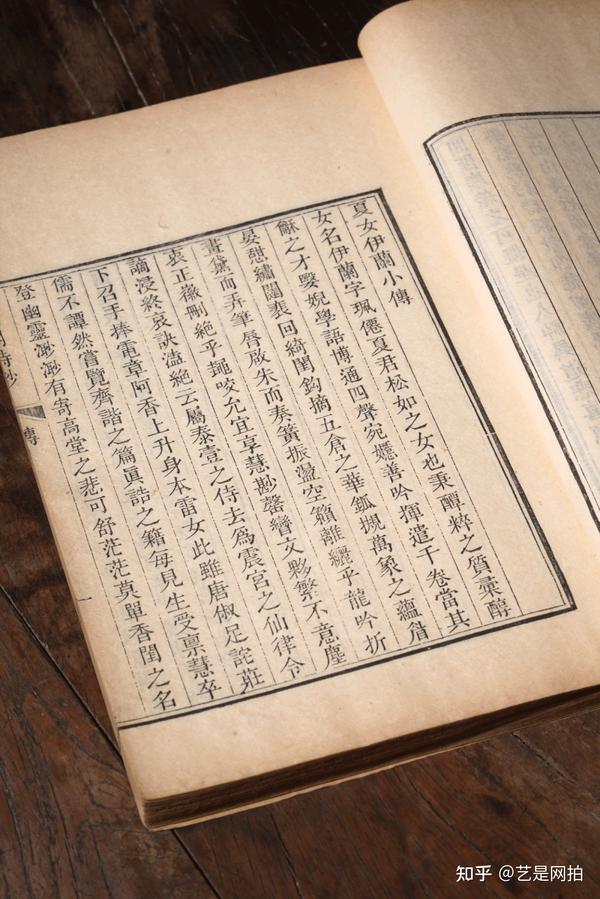 夏女伊蘭小傳
女名伊蘭字珮僊夏君松如之女也秉醰粹之質稟醇
龢之才嫛婗學語博通四聲宛孋善吟揮遣千卷當其
晏憩繡闥裴回綺閨鉤摘五倉之華㼌槻萬象之蘊眉
畫黛而弄筆脣啟朱而奏簧振盪空籟離纚乎龍吟折
衷正徽刪絕乎蠅咬允宜享慧尠罄文夥繁不意塵
謫浸終哀訣溘絕云屬泰壹之侍去爲震宮之仙律令
下召手捧電章阿香上升身本雷女此雖唐俶足詫莊
儒不譚然嘗覽齊諧之篇眞誥之籍每見生受禀慧卒
登幽靈渺渺有寄高堂之悲可舒茫茫莫單香閨之名
詩鈔
傳
知乎 @艺是网拍